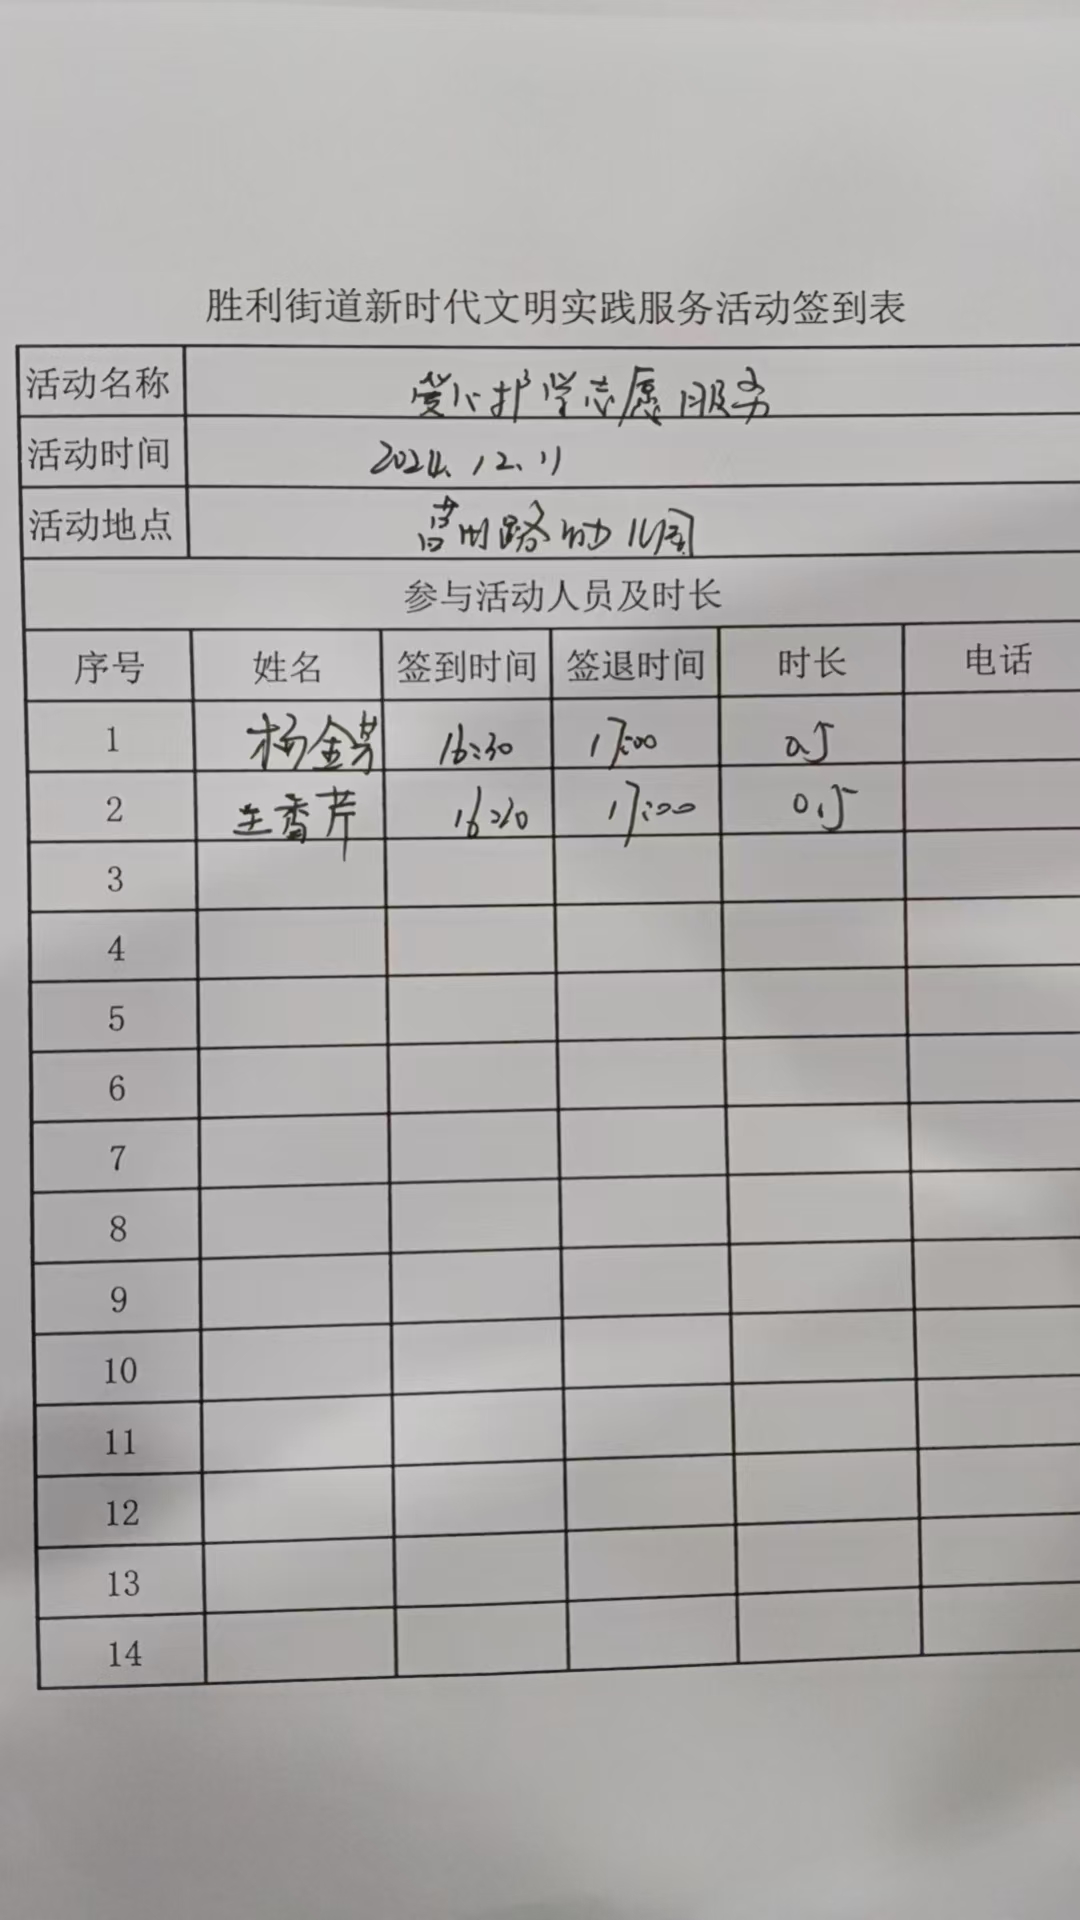 胜利街道新时代文明实践服务活动签到表
活动名称 爱心护学志愿服务
活动时间 2024.12.11
活动地点 莒州路幼儿园
参与活动人员及时长
序号 姓名 签到时间 签退时间 时长 电话
1 杨金芳 16:30 17:00 0.5
2 王香芹 16:30 17:00 0.5
3
4
5
6
7
8
9
10
11
12
13
14